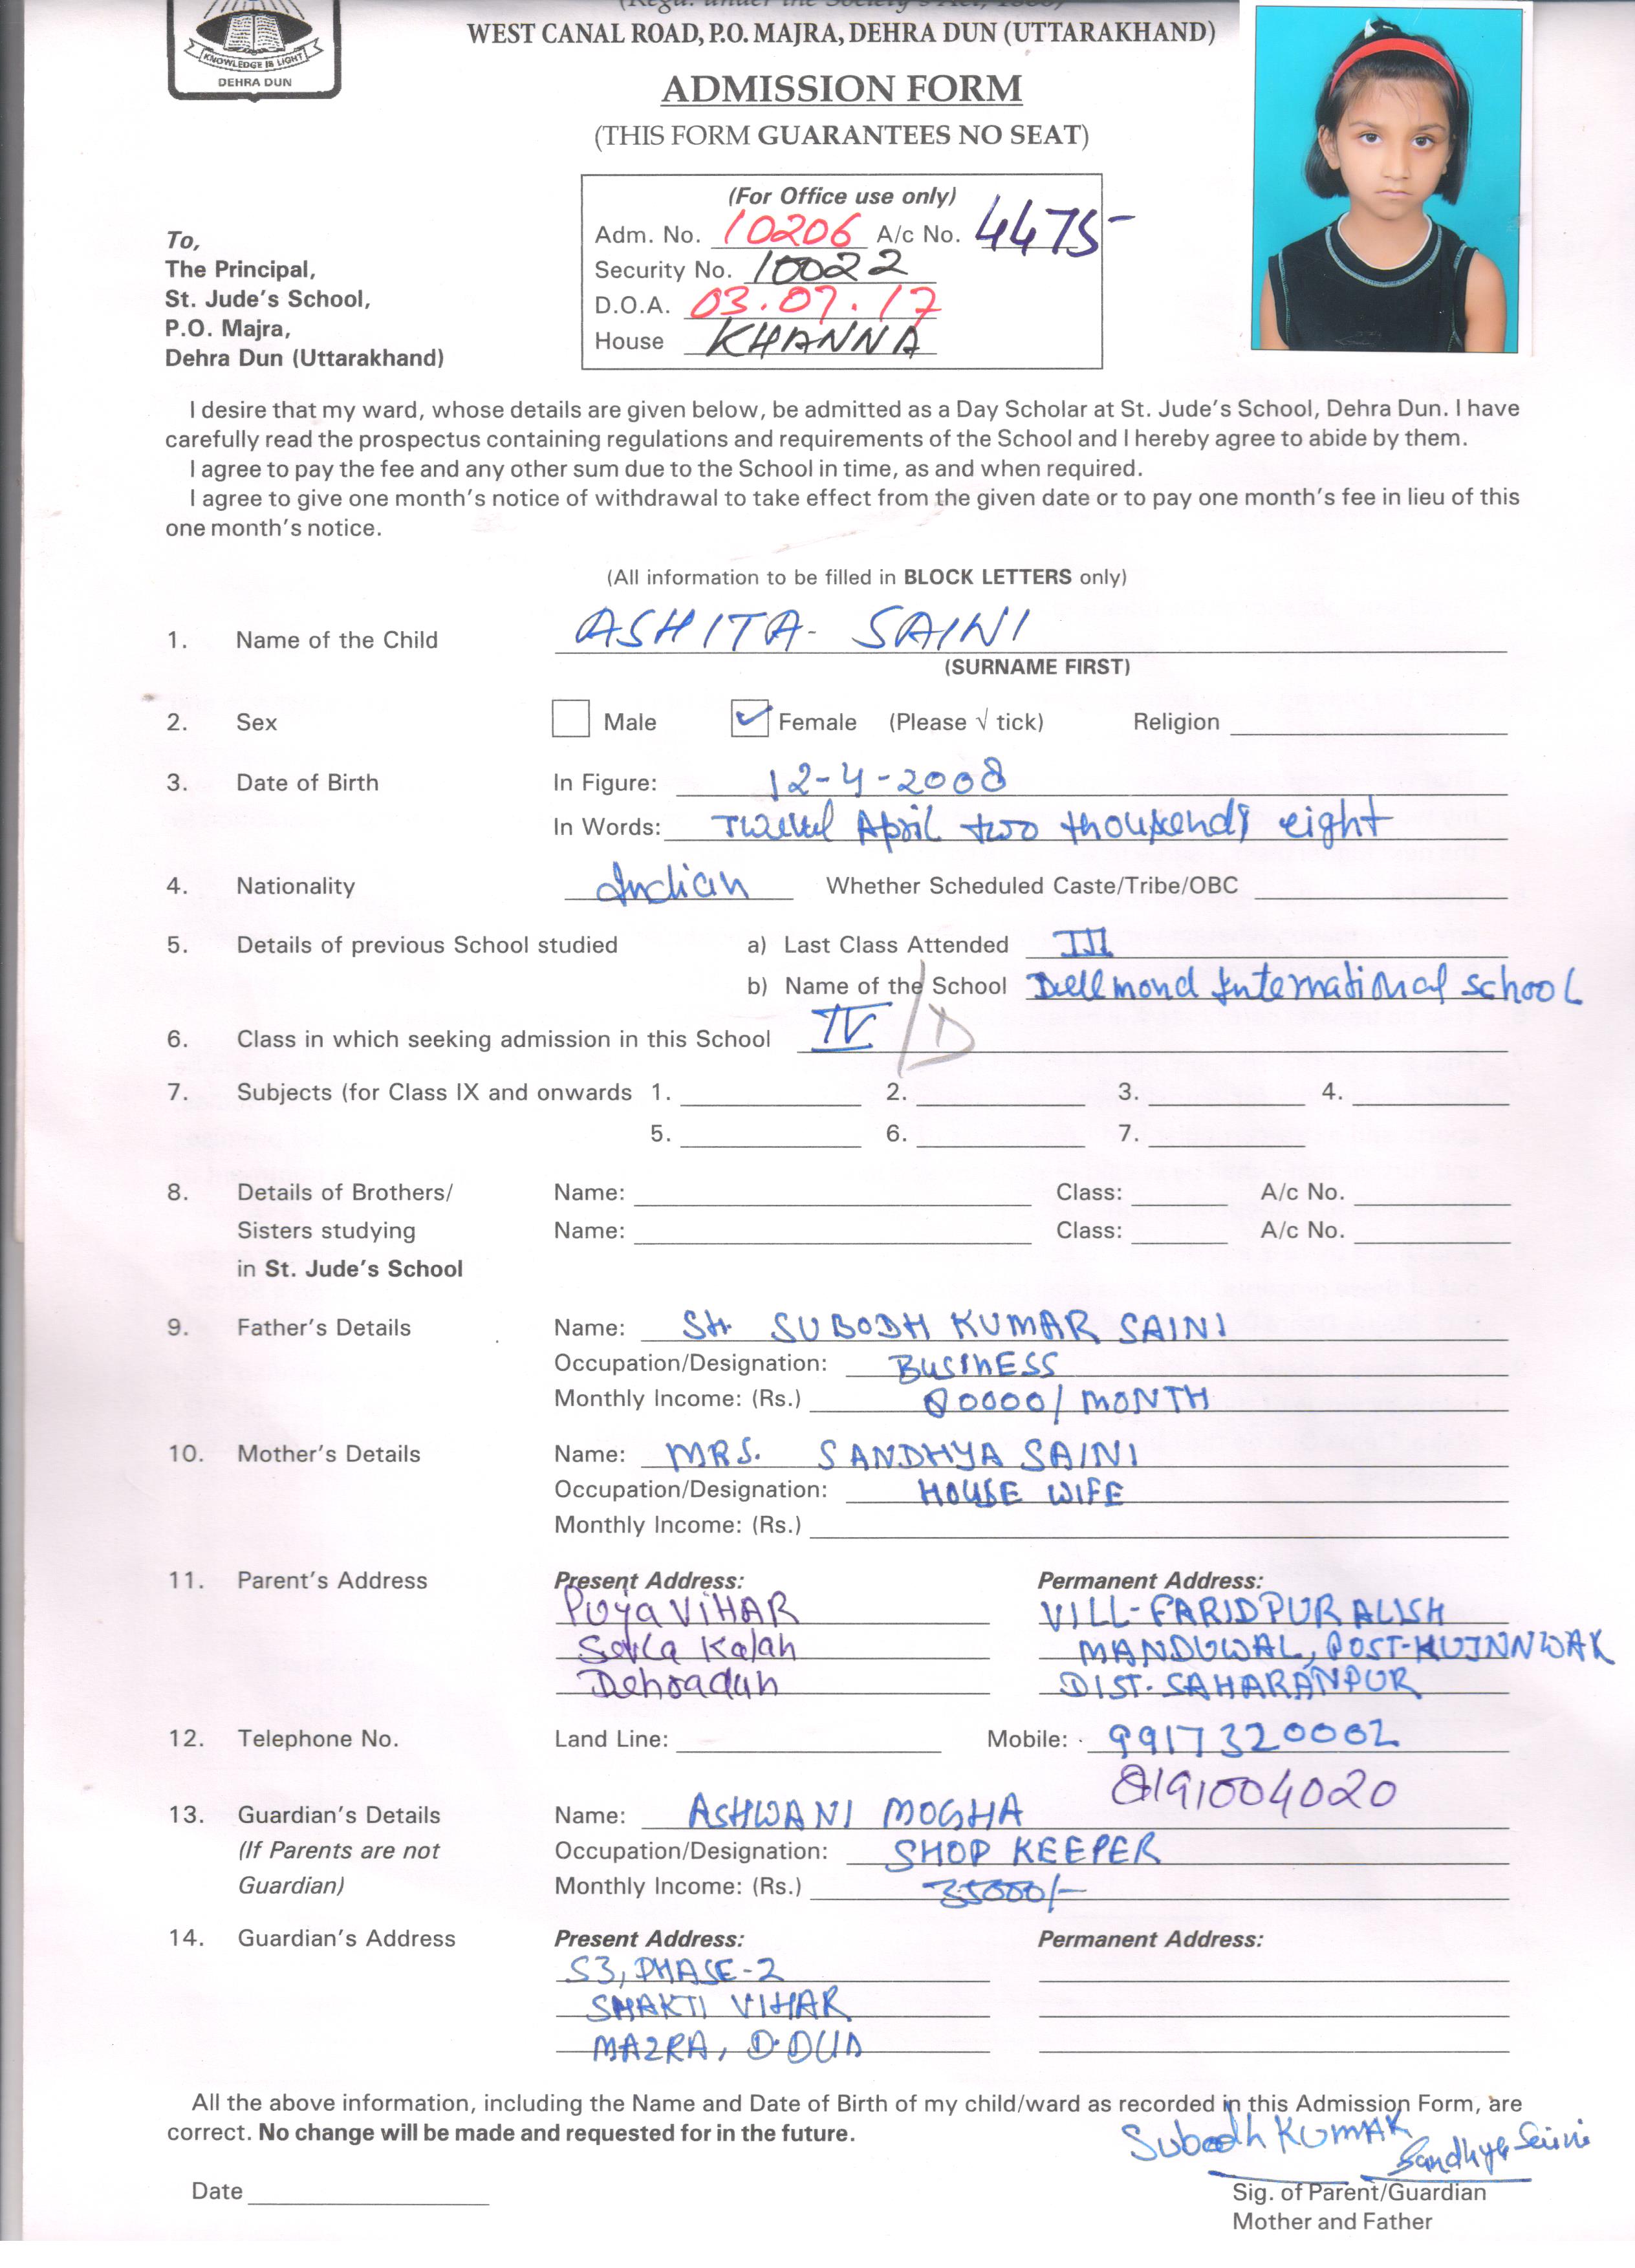 KNOWLEDGE IS LIGHT
DEHRA DUN
(Regd. under the Society's Act, 1860)
WEST CANAL ROAD, P.O. MAJRA, DEHRA DUN (UTTARAKHAND)
ADMISSION FORM
(THIS FORM GUARANTEES NO SEAT)
(For Office use only)
Adm. No. 10206 A/c No. 4475
Security No. 10022
D.O.A. 03.07.17
House KHANNA
To,
The Principal,
St. Jude's School,
P.O. Majra,
Dehra Dun (Uttarakhand)
I desire that my ward, whose details are given below, be admitted as a Day Scholar at St. Jude's School, Dehra Dun. I have
carefully read the prospectus containing regulations and requirements of the School and I hereby agree to abide by them.
I agree to pay the fee and any other sum due to the School in time, as and when required.
I agree to give one month's notice of withdrawal to take effect from the given date or to pay one month's fee in lieu of this
one month's notice.
(All information to be filled in BLOCK LETTERS only)
1. Name of the Child ASHITA- SAINI
(SURNAME FIRST)
2. Sex Male ✓ Female (Please √ tick) Religion
3. Date of Birth In Figure: 12-4-2008
In Words: April two eight
4. Nationality Indian Whether Scheduled Caste/Tribe/OBC
5. Details of previous School studied a) Last Class Attended III
b) Name of the School Dellmond International School
6. Class in which seeking admission in this School IV / D
7. Subjects (for Class IX and onwards 1. 2. 3. 4.
5. 6. 7.
8. Details of Brothers/ Name: Class: A/c No.
Sisters studying Name: Class: A/c No.
in St. Jude's School
9. Father's Details Name: SH. SUBODH KUMAR SAINI
Occupation/Designation: BUSINESS
Monthly Income: (Rs.) 80000/ MONTH
10. Mother's Details Name: MRS. SANDHYA SAINI
Occupation/Designation: HOUSE WIFE
Monthly Income: (Rs.)
11. Parent's Address Present Address: Permanent Address:
PUJA VIHAR VILL-FARIDPUR ALISH
Sevla Kalan MANDUWAL, POST-
Dehradun DIST. SAHARANPUR
12. Telephone No. Land Line: Mobile: 9917320002
8191004020
13. Guardian's Details Name: ASHWANI MOGHA
(If Parents are not Occupation/Designation: SHOP KEEPER
Guardian) Monthly Income: (Rs.) 35000/-
14. Guardian's Address Present Address: Permanent Address:
S3, PHASE-2
SHAKTI VIHAR
MAZRA, D.DUN
All the above information, including the Name and Date of Birth of my child/ward as recorded in this Admission Form, are
correct. No change will be made and requested for in the future.
Subodh KUMAR Sandhya Saini
Date Sig. of Parent/Guardian
Mother and Father